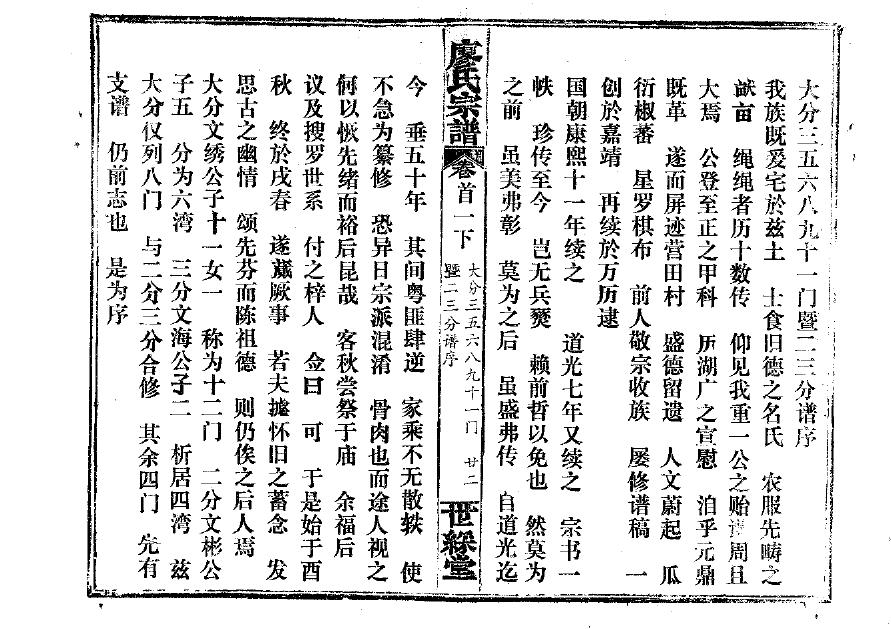 大分三五六八九十一门暨二三分谱序
我族既爰宅於兹土 士食旧德之名氏 农服先畴之
畎亩 绳绳者历十数传 仰见我重一公之贻谋周且
大焉 公登至正之甲科 历湖广之宣慰 洎乎元鼎
既革 遂而屏迹营田村 盛德留遗 人文蔚起 瓜
衍椒蕃 星罗棋布 前人敬宗收族 屡修谱稿 一
创於嘉靖 再续於万历逮
国朝康熙十一年续之 道光七年又续之 宗书一
帙 珍传至今 岂无兵燹 赖前哲以免也 然莫为
之前 虽美弗彰 莫为之后 虽盛弗传 自道光迄
廖氏宗譜
卷首一下
大分三五六八九十一门
暨二三分谱序
廿二
世綵堂
今 垂五十年 其间粤匪肆逆 家乘不无散轶 使
不急为纂修 恐异日宗派混淆 骨肉也而途人视之
何以恢先绪而裕后昆哉 客秋尝祭于庙 余福后
议及搜罗世系 付之梓人 佥曰 可 于是始于酉
秋 终於戌春 遂蒇厥事 若夫摅怀旧之蓄念 发
思古之幽情 颂先芬而陈祖德 则仍俟之后人焉
大分文绣公子十一女一 称为十二门 二分文彬公
子五 分为六湾 三分文海公子二 析居四湾 兹
大分仅列八门 与二分三分合修 其余四门 先有
支谱 仍前志也 是为序